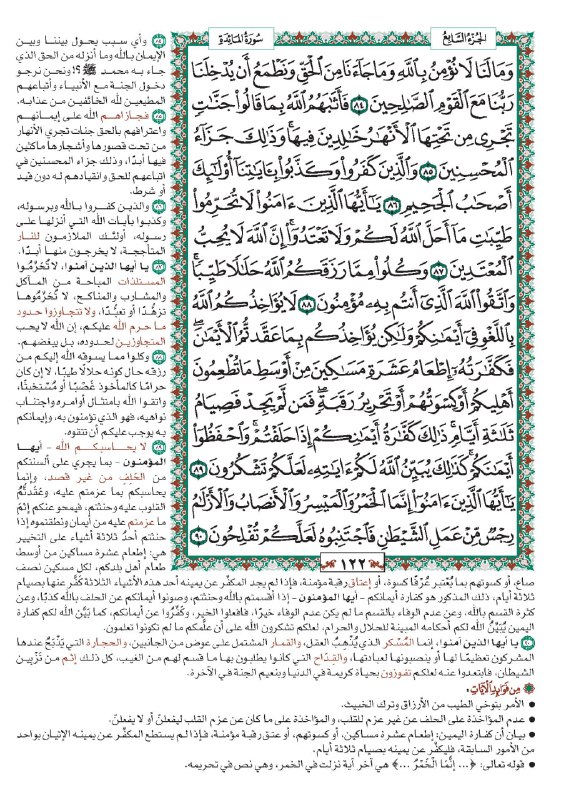 الجزء السابع
سورة المائدة
وَمَا لَنَا لَا نُؤْمِنُ بِٱللَّهِ وَمَا جَآءَنَا مِنَ ٱلْحَقِّ وَنَطْمَعُ أَن يُدْخِلَنَا
رَبُّنَا مَعَ ٱلْقَوْمِ ٱلصَّٰلِحِينَ ٨٤ فَأَثَٰبَهُمُ ٱللَّهُ بِمَا قَالُوا۟ جَنَّٰتٍ
تَجْرِى مِن تَحْتِهَا ٱلْأَنْهَٰرُ خَٰلِدِينَ فِيهَا ۚ وَذَٰلِكَ جَزَآءُ
ٱلْمُحْسِنِينَ ٨٥ وَٱلَّذِينَ كَفَرُوا۟ وَكَذَّبُوا۟ بِـَٔايَٰتِنَآ أُو۟لَٰٓئِكَ
أَصْحَٰبُ ٱلْجَحِيمِ ٨٦ يَٰٓأَيُّهَا ٱلَّذِينَ ءَامَنُوا۟ لَا تُحَرِّمُوا۟
طَيِّبَٰتِ مَآ أَحَلَّ ٱللَّهُ لَكُمْ وَلَا تَعْتَدُوٓا۟ ۚ إِنَّ ٱللَّهَ لَا يُحِبُّ
ٱلْمُعْتَدِينَ ٨٧ وَكُلُوا۟ مِمَّا رَزَقَكُمُ ٱللَّهُ حَلَٰلًا طَيِّبًا ۚ
وَٱتَّقُوا۟ ٱللَّهَ ٱلَّذِىٓ أَنتُم بِهِۦ مُؤْمِنُونَ ٨٨ لَا يُؤَاخِذُكُمُ ٱللَّهُ
بِٱللَّغْوِ فِىٓ أَيْمَٰنِكُمْ وَلَٰكِن يُؤَاخِذُكُم بِمَا عَقَّدتُّمُ ٱلْأَيْمَٰنَ ۖ
فَكَفَّٰرَتُهُۥٓ إِطْعَامُ عَشَرَةِ مَسَٰكِينَ مِنْ أَوْسَطِ مَا تُطْعِمُونَ
أَهْلِيكُمْ أَوْ كِسْوَتُهُمْ أَوْ تَحْرِيرُ رَقَبَةٍ ۖ فَمَن لَّمْ يَجِدْ فَصِيَامُ
ثَلَٰثَةِ أَيَّامٍ ۚ ذَٰلِكَ كَفَّٰرَةُ أَيْمَٰنِكُمْ إِذَا حَلَفْتُمْ ۚ وَٱحْفَظُوٓا۟
أَيْمَٰنَكُمْ ۚ كَذَٰلِكَ يُبَيِّنُ ٱللَّهُ لَكُمْ ءَايَٰتِهِۦ لَعَلَّكُمْ تَشْكُرُونَ ٨٩
يَٰٓأَيُّهَا ٱلَّذِينَ ءَامَنُوٓا۟ إِنَّمَا ٱلْخَمْرُ وَٱلْمَيْسِرُ وَٱلْأَنصَابُ وَٱلْأَزْلَٰمُ
رِجْسٌ مِّنْ عَمَلِ ٱلشَّيْطَٰنِ فَٱجْتَنِبُوهُ لَعَلَّكُمْ تُفْلِحُونَ ٩٠
١٢٢
٨٤ وأي سبب يحول بيننا وبين
الإيمان بالله وما أنزله من الحق الذي
جاء به محمد ﷺ؟! ونحن نرجو
دخول الجنة مع الأنبياء وأتباعهم
المطيعين لله الخائفين من عذابه.
٨٥ فجازاهم الله على إيمانهم
واعترافهم بالحق جنات تجري الأنهار
من تحت قصورها وأشجارها ماكثين
فيها أبدًا، وذلك جزاء المحسنين في
اتباعهم للحق وانقيادهم له دون قيد
أو شرط.
٨٦ والذين كفروا بالله وبرسوله،
وكذبوا بآيات الله التي أنزلها على
رسوله، أولئك الملازمون للنار
المتأججة، لا يخرجون منها أبدًا.
٨٧ يا أيها الذين آمنوا، لا تُحَرِّموا
المستلذات المباحة من المآكل
والمشارب والمناكح، لا تُحَرِّموها
تزهدًا أو تعبدًا، ولا تتجاوزوا حدود
ما حرم الله عليكم، إن الله لا يحب
المتجاوزين لحدوده، بل يبغضهم.
٨٨ وكلوا مما يسوقه الله إليكم من
رزقه حال كونه حلالًا طيبًا، لا إن كان
حرامًا كالمأخوذ غصبًا أو مُسْتخبثًا،
واتقوا الله بامتثال أوامره واجتناب
نواهيه، فهو الذي تؤمنون به، وإيمانكم
به يوجب عليكم أن تتقوه.
٨٩ لا يحاسبكم الله - أيها
المؤمنون - بما يجري على ألسنتكم
من الحَلِف من غير قصد، وإنما
يحاسبكم بما عزمتم عليه، وعَقَدتُّم
القلوب عليه وحنثتم، فيمحو عنكم إثمَ
ما عزمتم عليه من أيمان ونطقتموه إذا
حنثتم أحدُ ثلاثة أشياء على التخيير
هي: إطعام عشرة مساكين من أوسط
طعام أهل بلدكم، لكل مسكين نصف
صاع، أو كسوتهم بما يُعْتبر عُرْفًا كسوة، أو إعتاق رقبة مؤمنة، فإذا لم يجد المكفِّر عن يمينه أحد هذه الأشياء الثلاثة كَفَّر عنها بصيام
ثلاثة أيام، ذلك المذكور هو كفارة أيمانكم - أيها المؤمنون - إذا أقسمتم بالله وحنثتم، وصونوا أيمانكم عن الحلف بالله كذبًا، وعن
كثرة القسم بالله، وعن عدم الوفاء بالقسم ما لم يكن عدم الوفاء خيرًا، فافعلوا الخير، وكَفِّرُوا عن أيمانكم، كما بَيَّن الله لكم كفارة
اليمين يُبَيِّن الله لكم أحكامه المبينة للحلال والحرام، لعلكم تشكرون الله على أن علَّمكم ما لم تكونوا تعلمون.
٩٠ يا أيها الذين آمنوا، إنما المُسْكر الذي يُذْهِبُ العقل، والقمار المشتمل على عوض من الجانبين، والحجارة التي يَذْبَحُ عندها
المشركون تعظيمًا لها أو ينصبونها لعبادتها، والقِداح التي كانوا يطلبون بها ما قسم لهم من الغيب، كل ذلك إثم من تَزْيين
الشيطان، فابتعدوا عنه لعلكم تفوزون بحياة كريمة في الدنيا وبنعيم الجنة في الآخرة.
من فوائد الآيات
• الأمر بتوخي الطيب من الأرزاق وترك الخبيث.
• عدم المؤاخذة على الحلف عن غير عزم للقلب، والمؤاخذة على ما كان عن عزم القلب ليفعلنّ أو لا يفعلنّ.
• بيان أن كفارة اليمين: إطعام عشرة مساكين، أو كسوتهم، أو عتق رقبة مؤمنة، فإذا لم يستطع المكفِّر عن يمينه الإتيان بواحد
من الأمور السابقة، فليكفِّر عن يمينه بصيام ثلاثة أيام.
• قوله تعالى: ﴿... إِنَّمَا الْخَمْرُ ...﴾ هي آخر آية نزلت في الخمر، وهي نص في تحريمه.